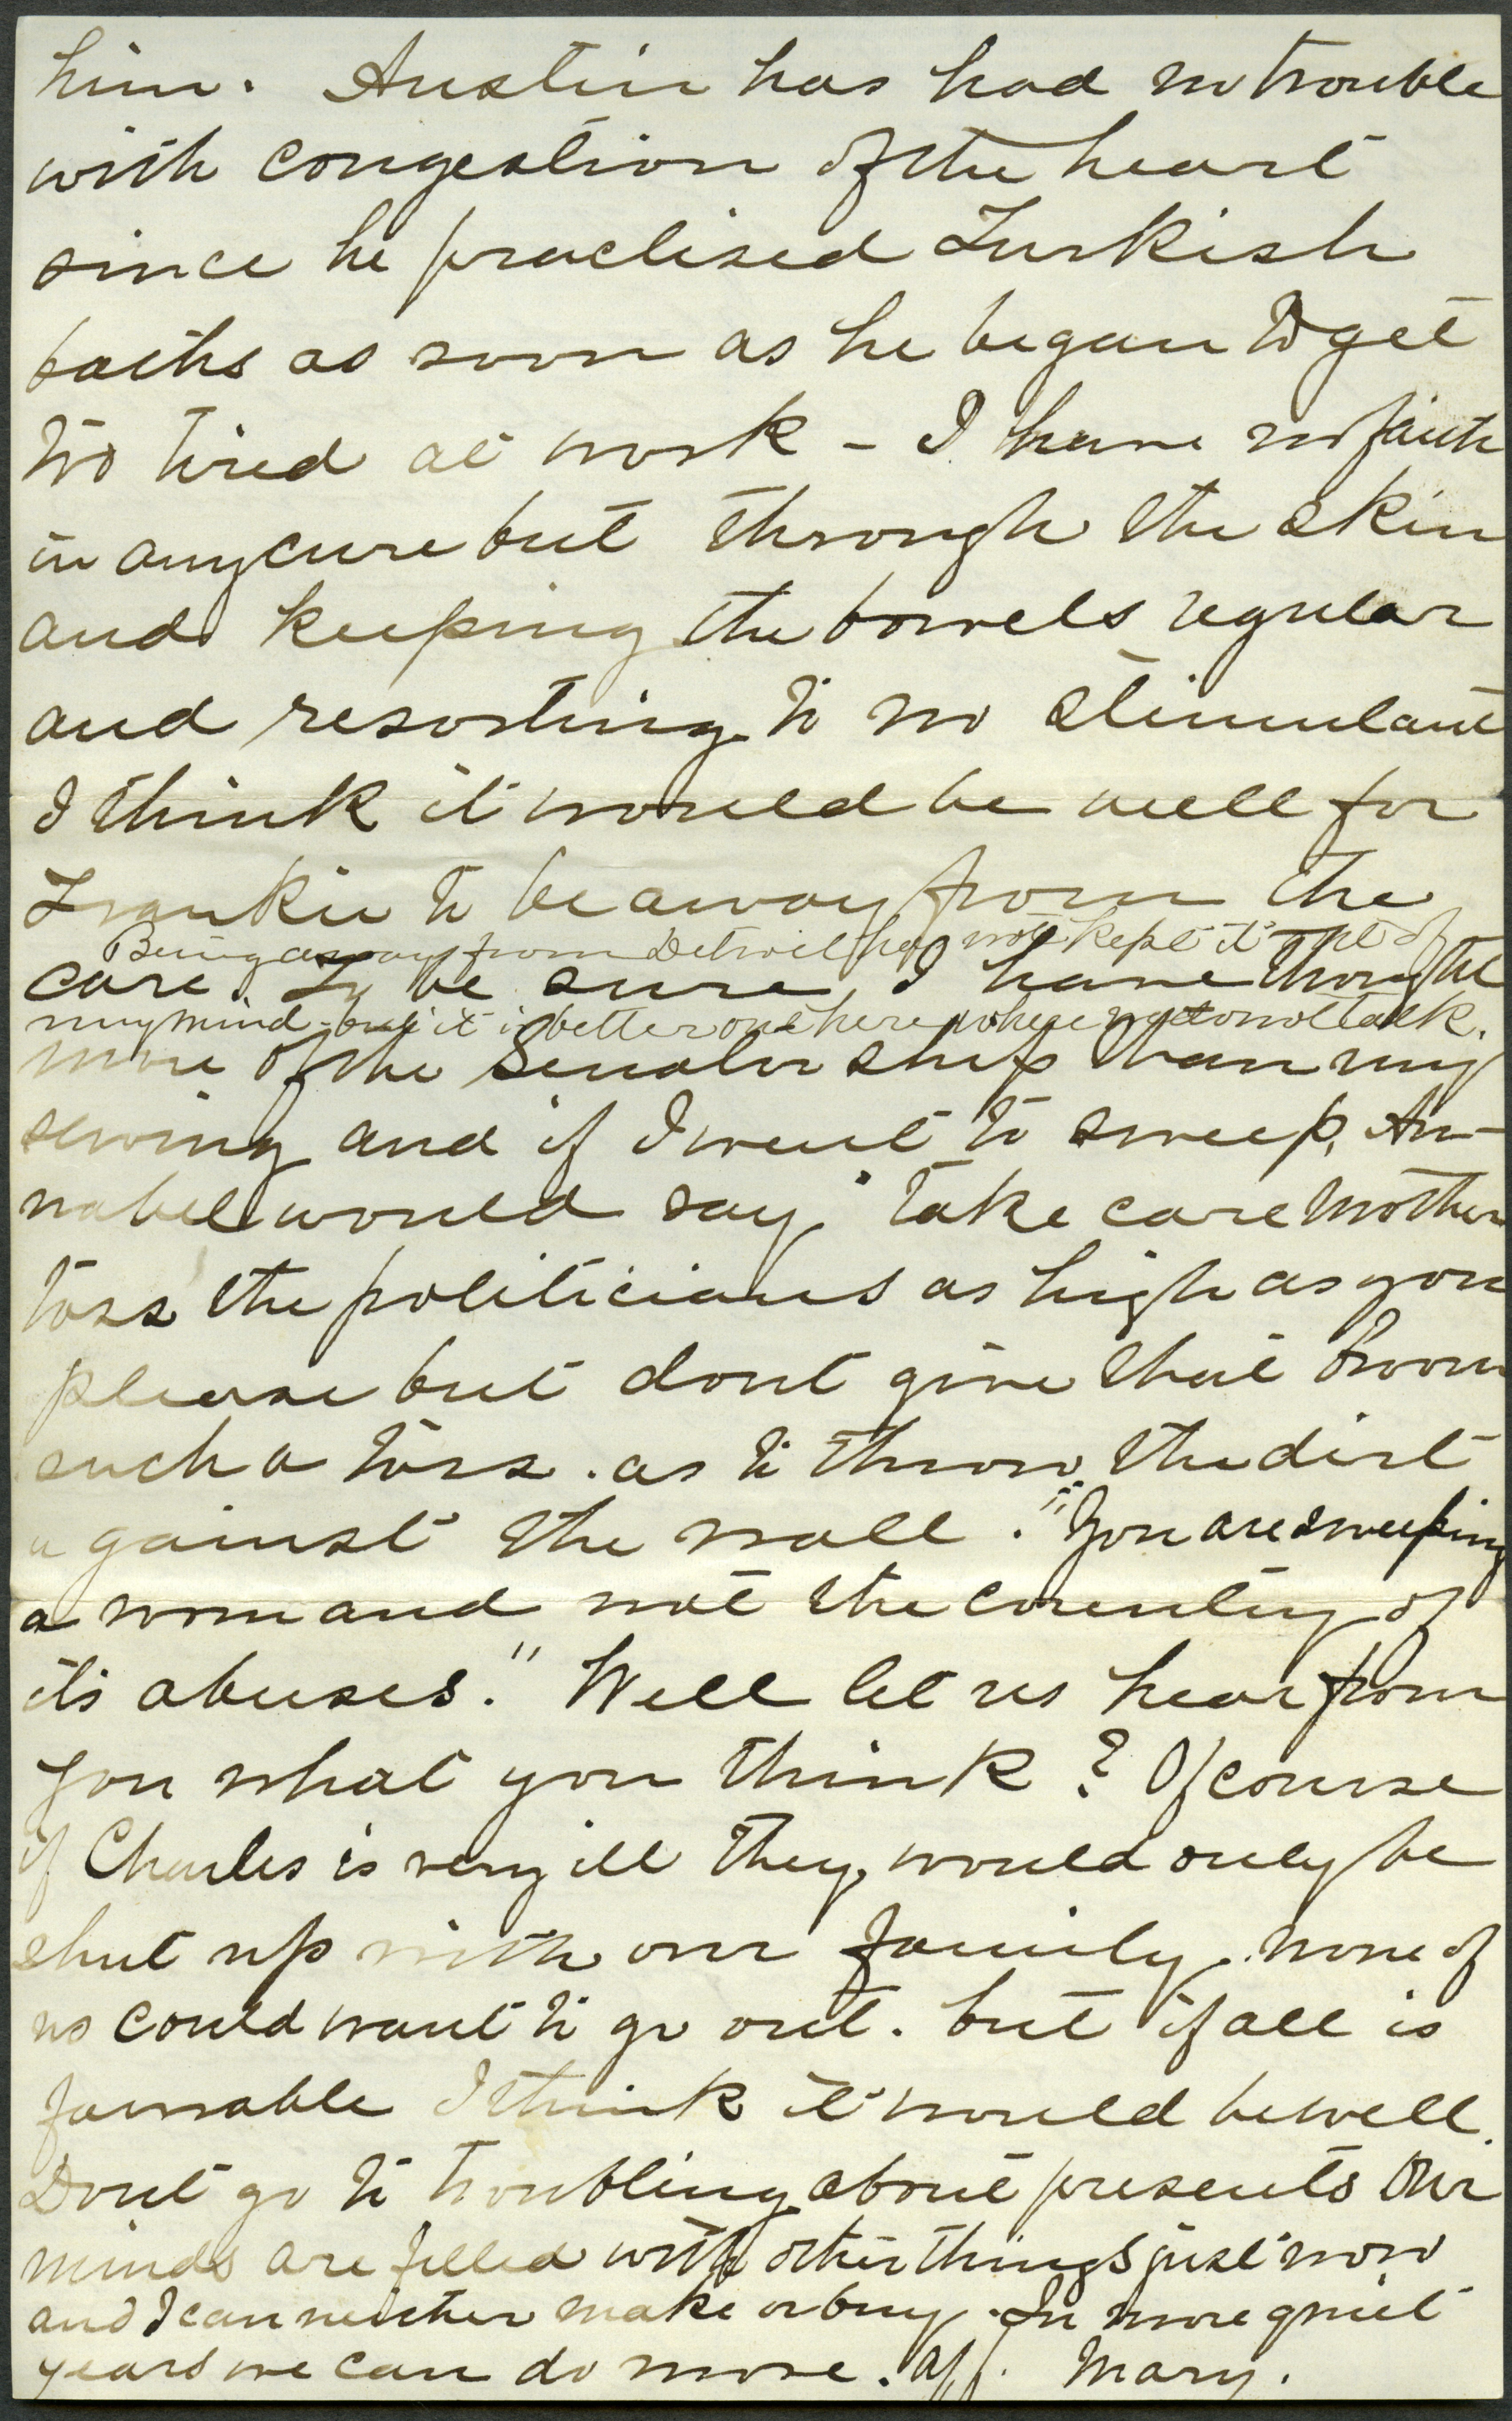 him. Austin has had no trouble
with congestion of the heart
since he practised Turkish
baths as soon as he began to get
too tired at work - I have no faith
in any cure but through the skin
and keeping the bowels regular
and resorting to no stimulant
I think it would be well for
Frankie to be away from the
Being away from Detroit has not kept it out of
care. To be sure, I have thought
my mind - but it is better out here where we do not talk.
more of the Senatorship than my
sewing and if I went to sweep, An-
nabel would say, "take care Mother
toss the politicians as high as you
please but dont give that broom
such a toss. as to throw the dirt
against the wall. "You are sweeping
a room and not the country of
its abuses." Well let us hear from
you what you think? Of course
if Charles is very ill they would only be
shut up with our family. none of
us could want to go out. but if all is
favorable I think it would be well.
Dont go to troubling about presents Our
minds are filled with other things just now
and I can neither make or buy. In more quiet
years we can do more. Aff. Mary.